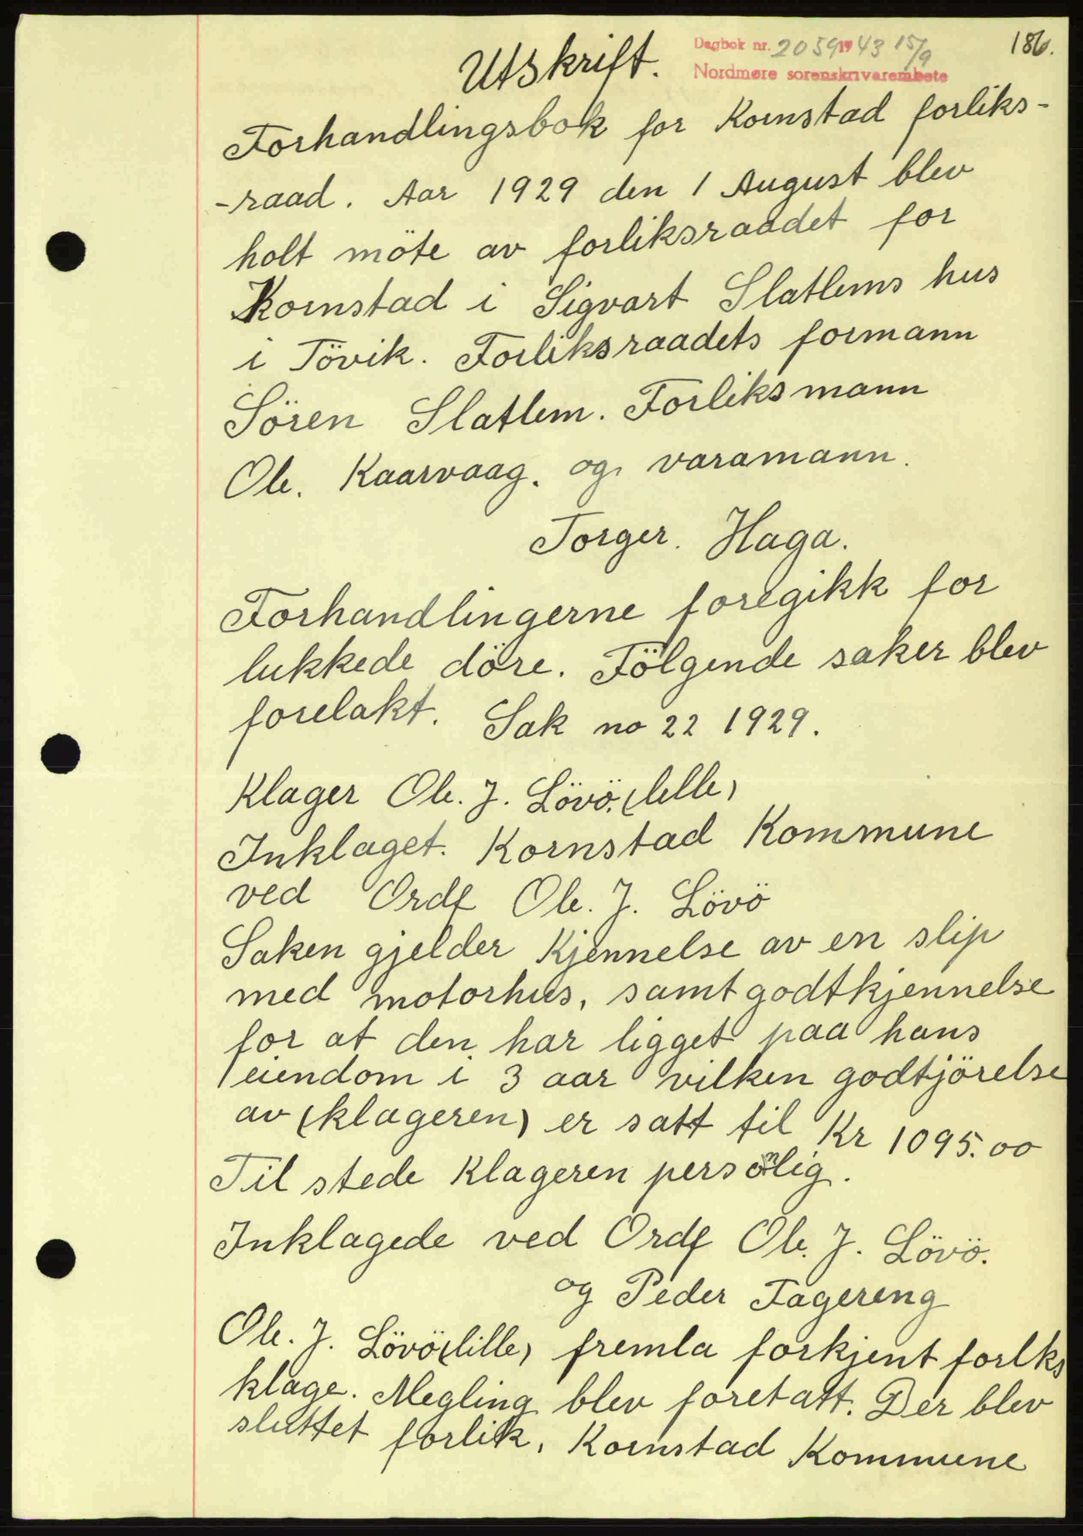 186.
Dagbok nr. 2059 1943 15/9
Nordmøre sorenskrivarembete
Utskrift.
Forhandlingsbok for Kornstad forliks-
-raad. Aar 1929 den 1 August blev
holt möte av forliksraadet for
Kornstad i Sigvart Slatlems hus
i Tövik. Forliksraadets formann
Sören Slatlem. Forliksmann
Ole. Kaarvaag. og. varamann.
Torger. Haga.
Forhandlingerne foregikk for
lukkede döre. Fölgende saker blev
forelakt. Sak no 22 1929.
Klager Ole. J. Lövö. (lille)
Inklaget. Kornstad Kommune
ved Ordf Ole. J. Lövö
Saken gjelder Kjennelse av en slip
med motorhus, samt godtkjennelse
for at den har ligget paa hans
eiendom i 3 aar vilken godtjörelse
av (klageren) er satt til Kr 1095.00
Til stede Klageren personlig.
Inklagede ved Ordf Ole. J. Lövö.
og Peder Fagereng
Ole. J. Lövö (lille) fremla forkjent forlks
klage. Megling blev foretatt. Der blev
sluttet forlik, Kornstad Kommune